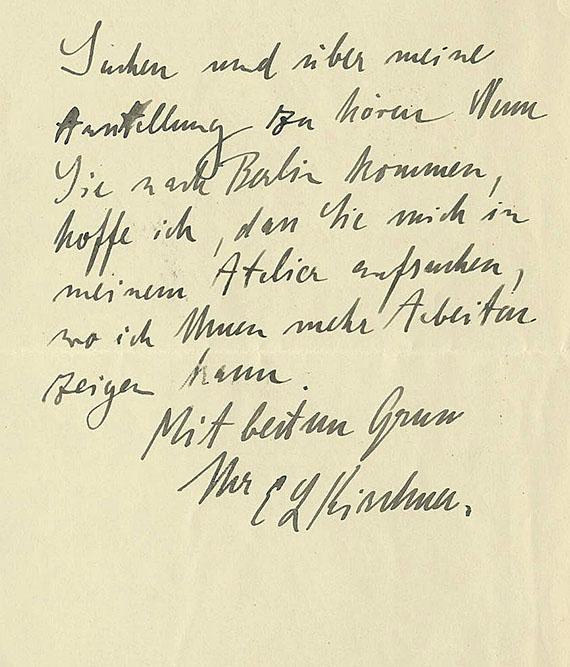 Suchen und über meine
Ausstellung zu hören Wenn
Sie nach Berlin kommen,
hoffe ich, dass Sie mich in
meinem Atelier aufsuchen,
wo ich Ihnen mehr Arbeiten
zeigen kann.
Mit bestem Gruss
Ihr E L Kirchner.